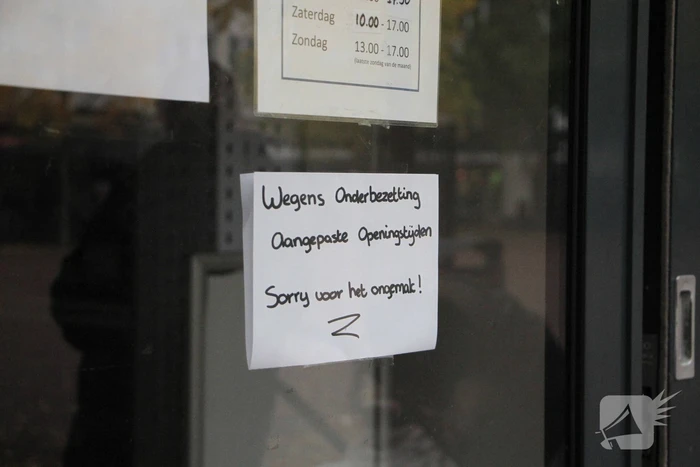 Zaterdag 10.00 - 17.00
Zondag 13.00 - 17.00
(laatste zondag van de maand)
Wegens Onderbezetting
Aangepaste Openingstijden
Sorry voor het ongemak!